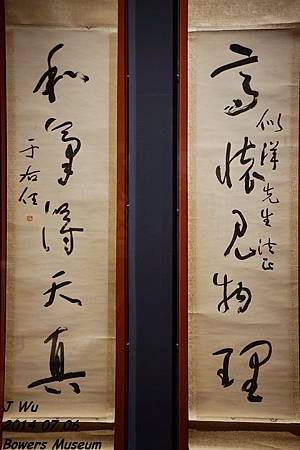 高懷見物理
似洋先生法正
和氣得天真
于右任
J Wu
2014.07.06
Bowers Museum